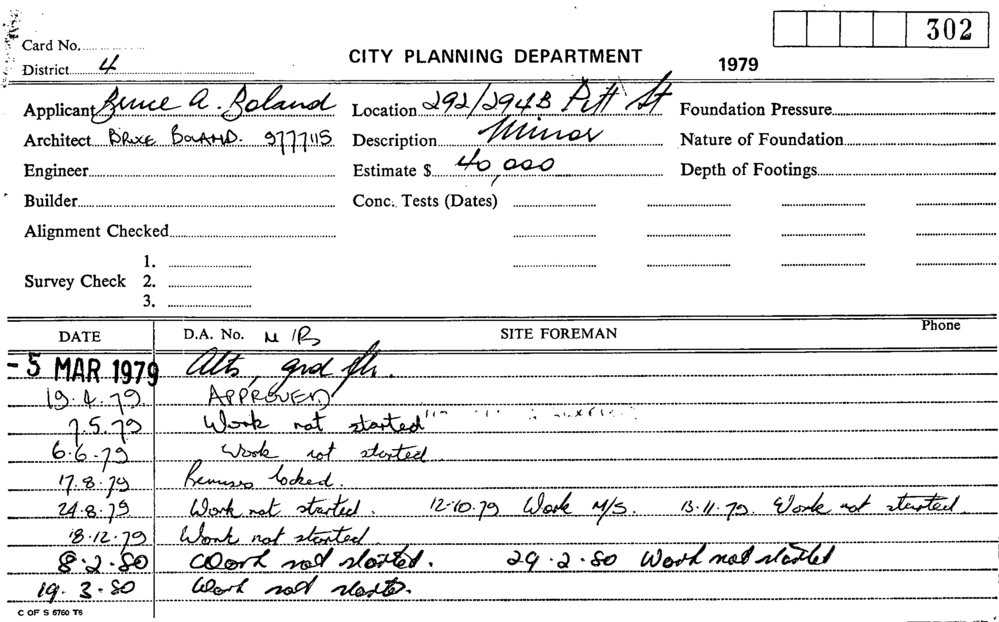 302
Card No.
District 4
CITY PLANNING DEPARTMENT
1979
Applicant Bruce A. Boland
Location 292/294B Pitt St
Foundation Pressure
Architect BRUCE BOLAND. 9777115
Description Minor
Nature of Foundation
Engineer
Estimate $ 40,000
Depth of Footings
Builder
Conc. Tests (Dates)
Alignment Checked
1.
Survey Check 2.
3.
DATE D.A. No. N/R SITE FOREMAN Phone
-5 MAR 1979 Alts, grd flr.
19.4.79. APPROVED
7.5.79 Work not started
6.6.79 Work not started
17.8.79 locked.
24.8.79 Work not started. 12.10.79 Work N/S. 13.11.79. Work not started.
18.12.79 Work not started
8.2.80 Work not started. 29.2.80 Work not started
19.3.80 Work not started.
C OF S 6760 T6